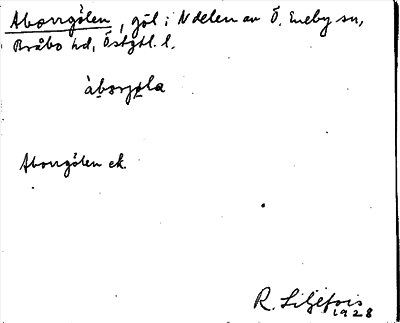 Aborrgölen, göl i N delen av Ö. Eneby sn,
Bråbo hd, Östgtl. l.
àborjøla
Aborrgölen ek.
R. Liljefors
1928